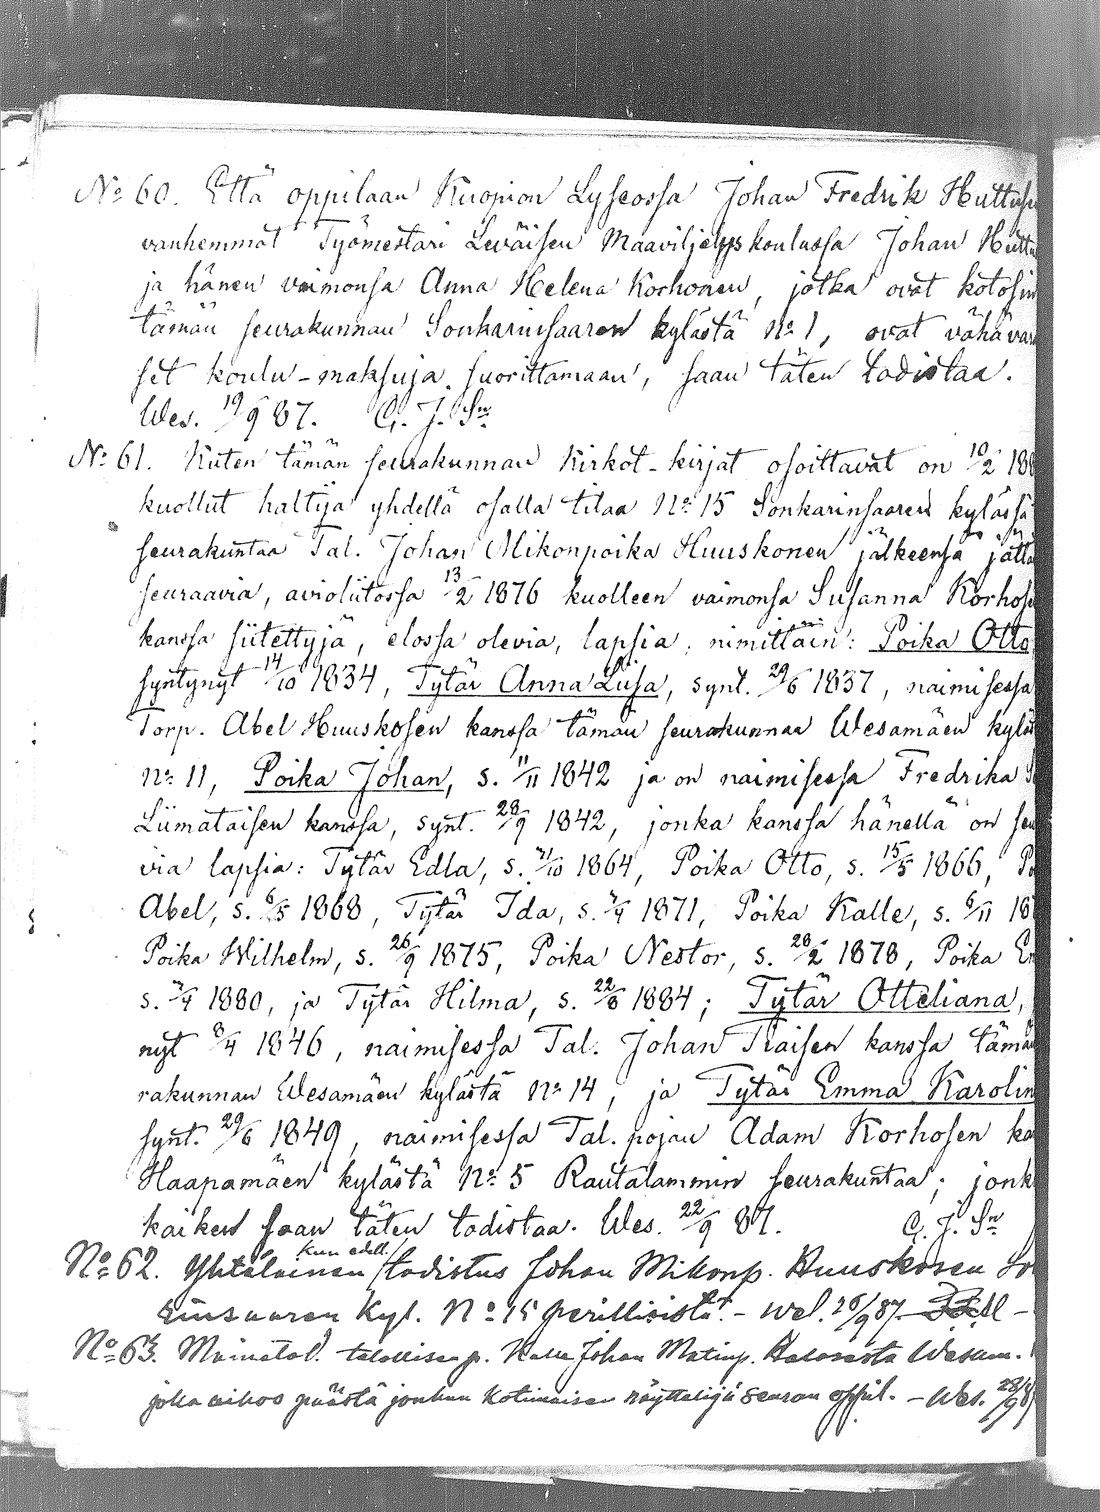 No 60. Että oppilaan Kuopion Lyseossa Johan Fredrik Huttuse
vanhemmat Työmestari Leväisen Maaviljelyskoulussa Johan Huttu
ja hänen vaimonsa Anna Helena Korhonen, jotka ovat kotosin
tämän seurakunnan Sonkarinsaaren kylästä No 1, ovat vähävara
set koulu-maksuja suorittamaan, saan täten todistaa.
Wes. 19/9 87. C. J. Sn
No 61. Kuten tämän seurakunnan Kirkot-kirjat osoittavat on 10/2 188
kuollut haltija yhdellä osalla tilaa No 15 Sonkarinsaaren kylässä
seurakuntaa Tal. Johan Mikonpoika Huuskonen jälkeensä jättä
seuraavia, avioliitossa 13/2 1876 kuolleen vaimonsa Susanna Korhose
kanssa siitettyjä, elossa olevia, lapsia, nimittäin: Poika Otto
syntynyt 14/10 1834, Tytär Anna Liisa, synt. 29/6 1837, naimisessa
Torp. Abel Huuskosen kanssa tämän seurakunnan Wesamäen kyläs
No 11, Poika Johan, s. 11/11 1842 ja on naimisessa Fredrika
Liimataisen kanssa, synt. 28/9 1842, jonka kanssa hänellä on seu
via lapsia: Tytär Edla, s. /10 1864, Poika Otto, s. 15/5 1866, Po
Abel, s. 6/5 1868, Tytär Ida, s. 7/4 1871, Poika Kalle, s. 6/11 18
Poika Wilhelm, s. 26/9 1875, Poika Nestor, s. 28/2 1878, Poika
s. 7/4 1880, ja Tytär Hilma, s. 22/8 1884; Tytär Otteliana,
nyt 8/4 1846, naimisessa Tal. Johan Tiaisen kanssa tämän
rakunnan Wesamäen kylästä No 14, ja Tytär Emma Karolin
synt. 29/6 1849, naimisessa Tal. pojan Adam Korhosen ka
Haapamäen kylästä No 5 Rautalammin seurakuntaa; jonk
kaiken saan täten todistaa. Wes. 22/9 87. C. J. Sn
No 62. Yhtäläinen kun edell. todistus Johan Mikonp. Huuskosen So
rinsaaren Kyl. No 15 perillisistä. - Wes. 26/9 87.
No 63. Mainetod. talollisen p. Kalle Johan Matinp. Wesam.
joka aikoo päästä jonkun Kotimaisen näyttelijäseuran oppil. - Wes. 28/9 87